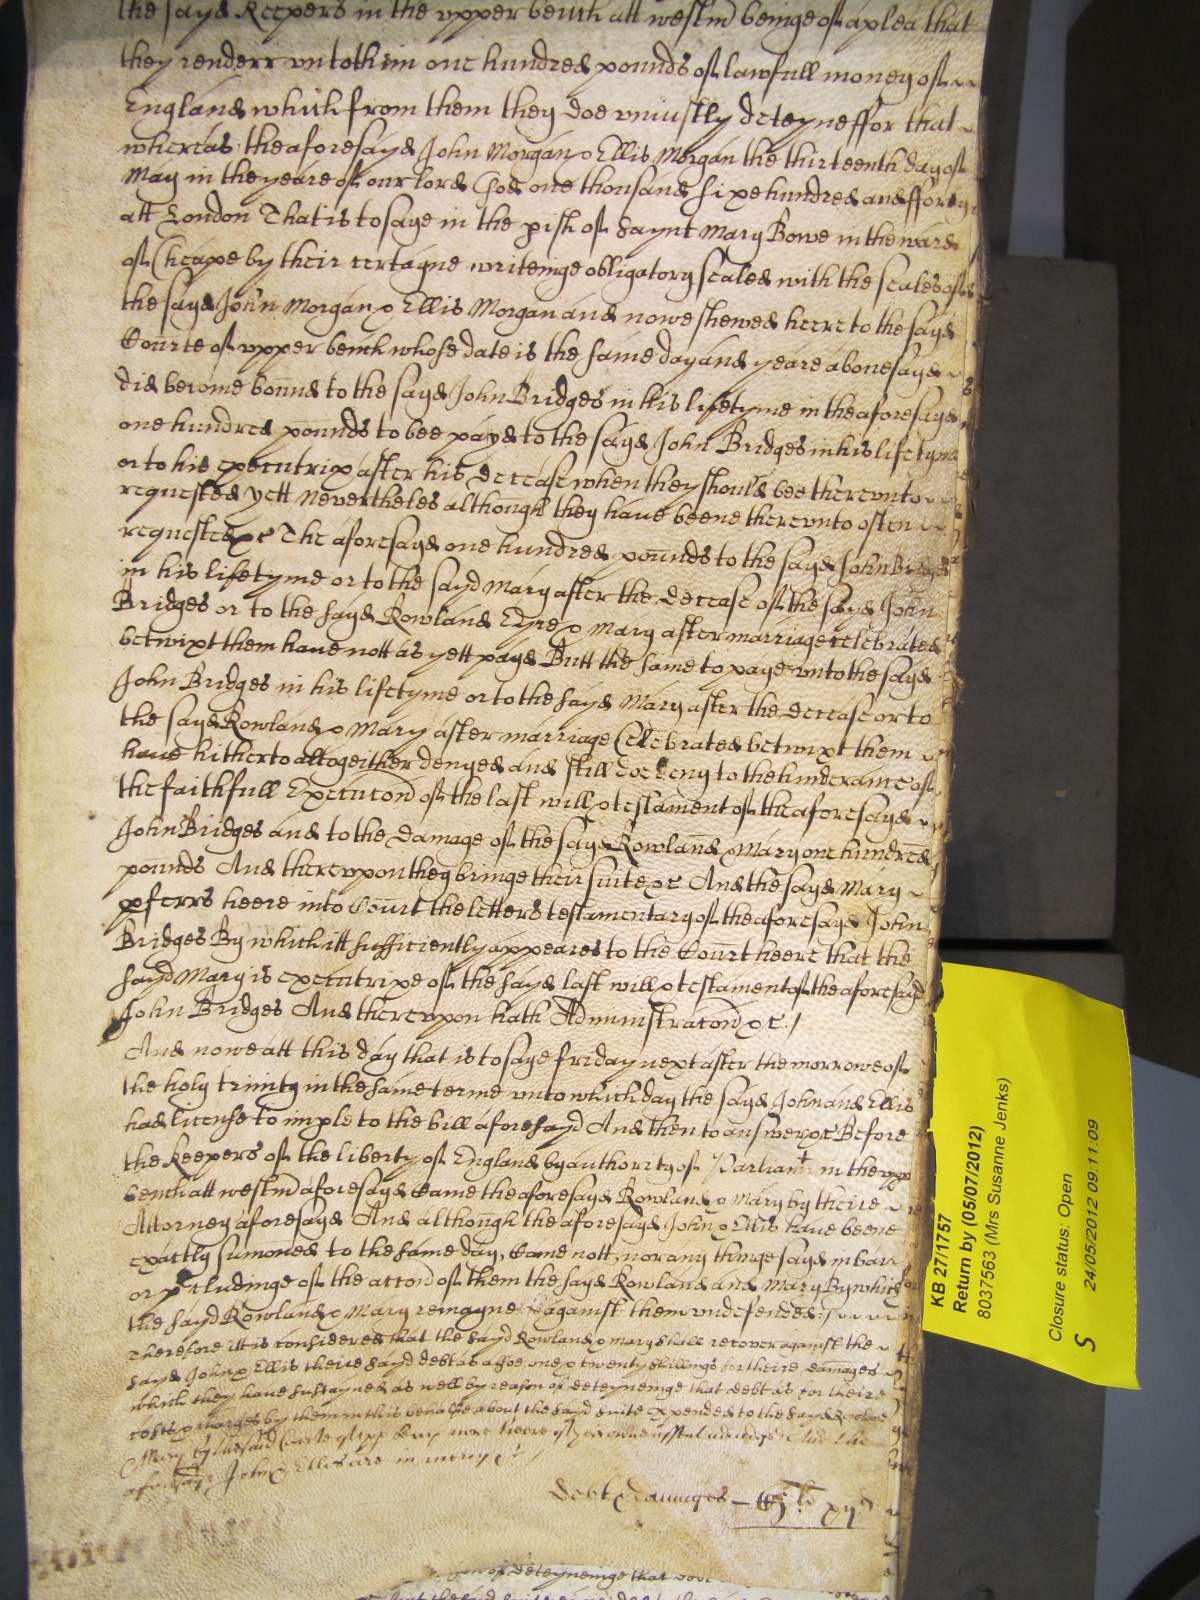 the sayd Keepers in the upper bench att westm beinge of a plea that
they render vnto him one hundred pounds of lawfull money of
England which from them they doe vniustly deteyne ffor that
whereas the aforesayd John Morgan & Ellis Morgan the thirteenth day of
May in the yeare of our lord God one thousand sixe hundred and fforty
att London That is to saye in the pish of Saynt Mary Bowe in the ward
of Cheape by their certayne writeinge obligatory sealed with the seales of
the sayd John Morgan & Ellis Morgan and nowe shewed heere to the sayd
Courte of vpper bench whose date is the same day and yeare abovesayd
did become bound to the sayd John Bridges in his lifetyme in the aforesayd
one hundred pounds to bee payd to the sayd John Bridges in his lifetyme
or to his executrix after his decease when they should bee therevnto
requested yett nevertheles although they have beene therevnto often
requested &c The aforesayd one hundred pounds to the sayd John Bridges
in his lifetyme or to the sayd Mary after the decease of the sayd John
Bridges or to the sayd Rowland Eyre & Mary after marriage celebrated
betwixt them have nott as yett payd Butt the same to paye vnto the sayd
John Bridges in his lifetyme or to the sayd Mary after the decease or to
the sayd Rowland & Mary after marriage Celebrated betwixt them
have hitherto altogeither denyed and still doe deny to the hinderance of
the faithfull Execucon of the last will & testament of the aforesayd
John Bridges and to the damage of the sayd Rowland & Mary one hundred
pounds And therevpon they bringe their suite &c And the sayd Mary
pferrs heere into Court the letters testamentary of the aforesayd John
Bridges By which itt sufficiently appeares to the Court heere that the
sayd Mary is executrixe of the sayd last will & testament of the aforesayd
John Bridges And therevpon hath Administracon &c /
And nowe att this day that is to saye friday next after the morrowe of
the holy trinity in the same terme vnto which day the sayd John and Ellis
had license to imple to the bill aforesayd And then to answer &c Before
the keepers of the liberty of England by authority of Parliamt in the vpper
bench att westm aforesayd Came the aforesayd Rowland & Mary by theire
Attorney aforesayd And although the aforesayd John & Ellis have beene
exactly sumoned to the same day, Came nott, nor any thinge sayd in barr
or pcludinge of the accon of them the sayd Rowland and Mary By which
the sayd Rowland & Mary remayne against them vndefended:
Therefore itt is considered that the sayd Rowland & mary shall recover against the
sayd John & Ellis theire sayd debt as alsoe one & twenty shillings for theire damages
which they have sustayned as well by reason of deteyneinge that debt as for theire
costs & charges by them in this behalfe about the sayd suite expended to the sayd Rowland
Mary by the said Courte of vpp bench nowe heere of their owne assent adiudged And the
aforesayd John & Ellis are in mercy &c /
Debt & damages
of deteyneinge that
KB 27/1757
Return by (05/07/2012)
8037563 (Mrs Susanne Jenks)
Closure status: Open
24/05/2012 09:11:09
S